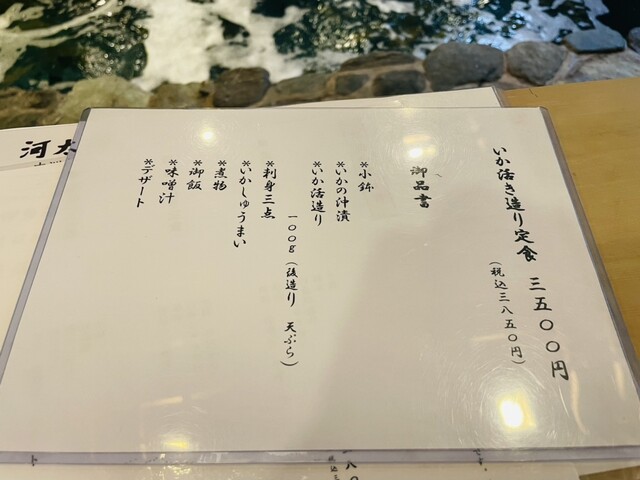 いか活き造り定食　三五〇〇円
（税込三八五〇円）
御品書
*小鉢
*いかの沖漬
*いか活造り
一〇〇g（後造り　天ぷら）
*刺身三点
*いかしゅうまい
*煮物
*御飯
*味噌汁
*デザート
河太